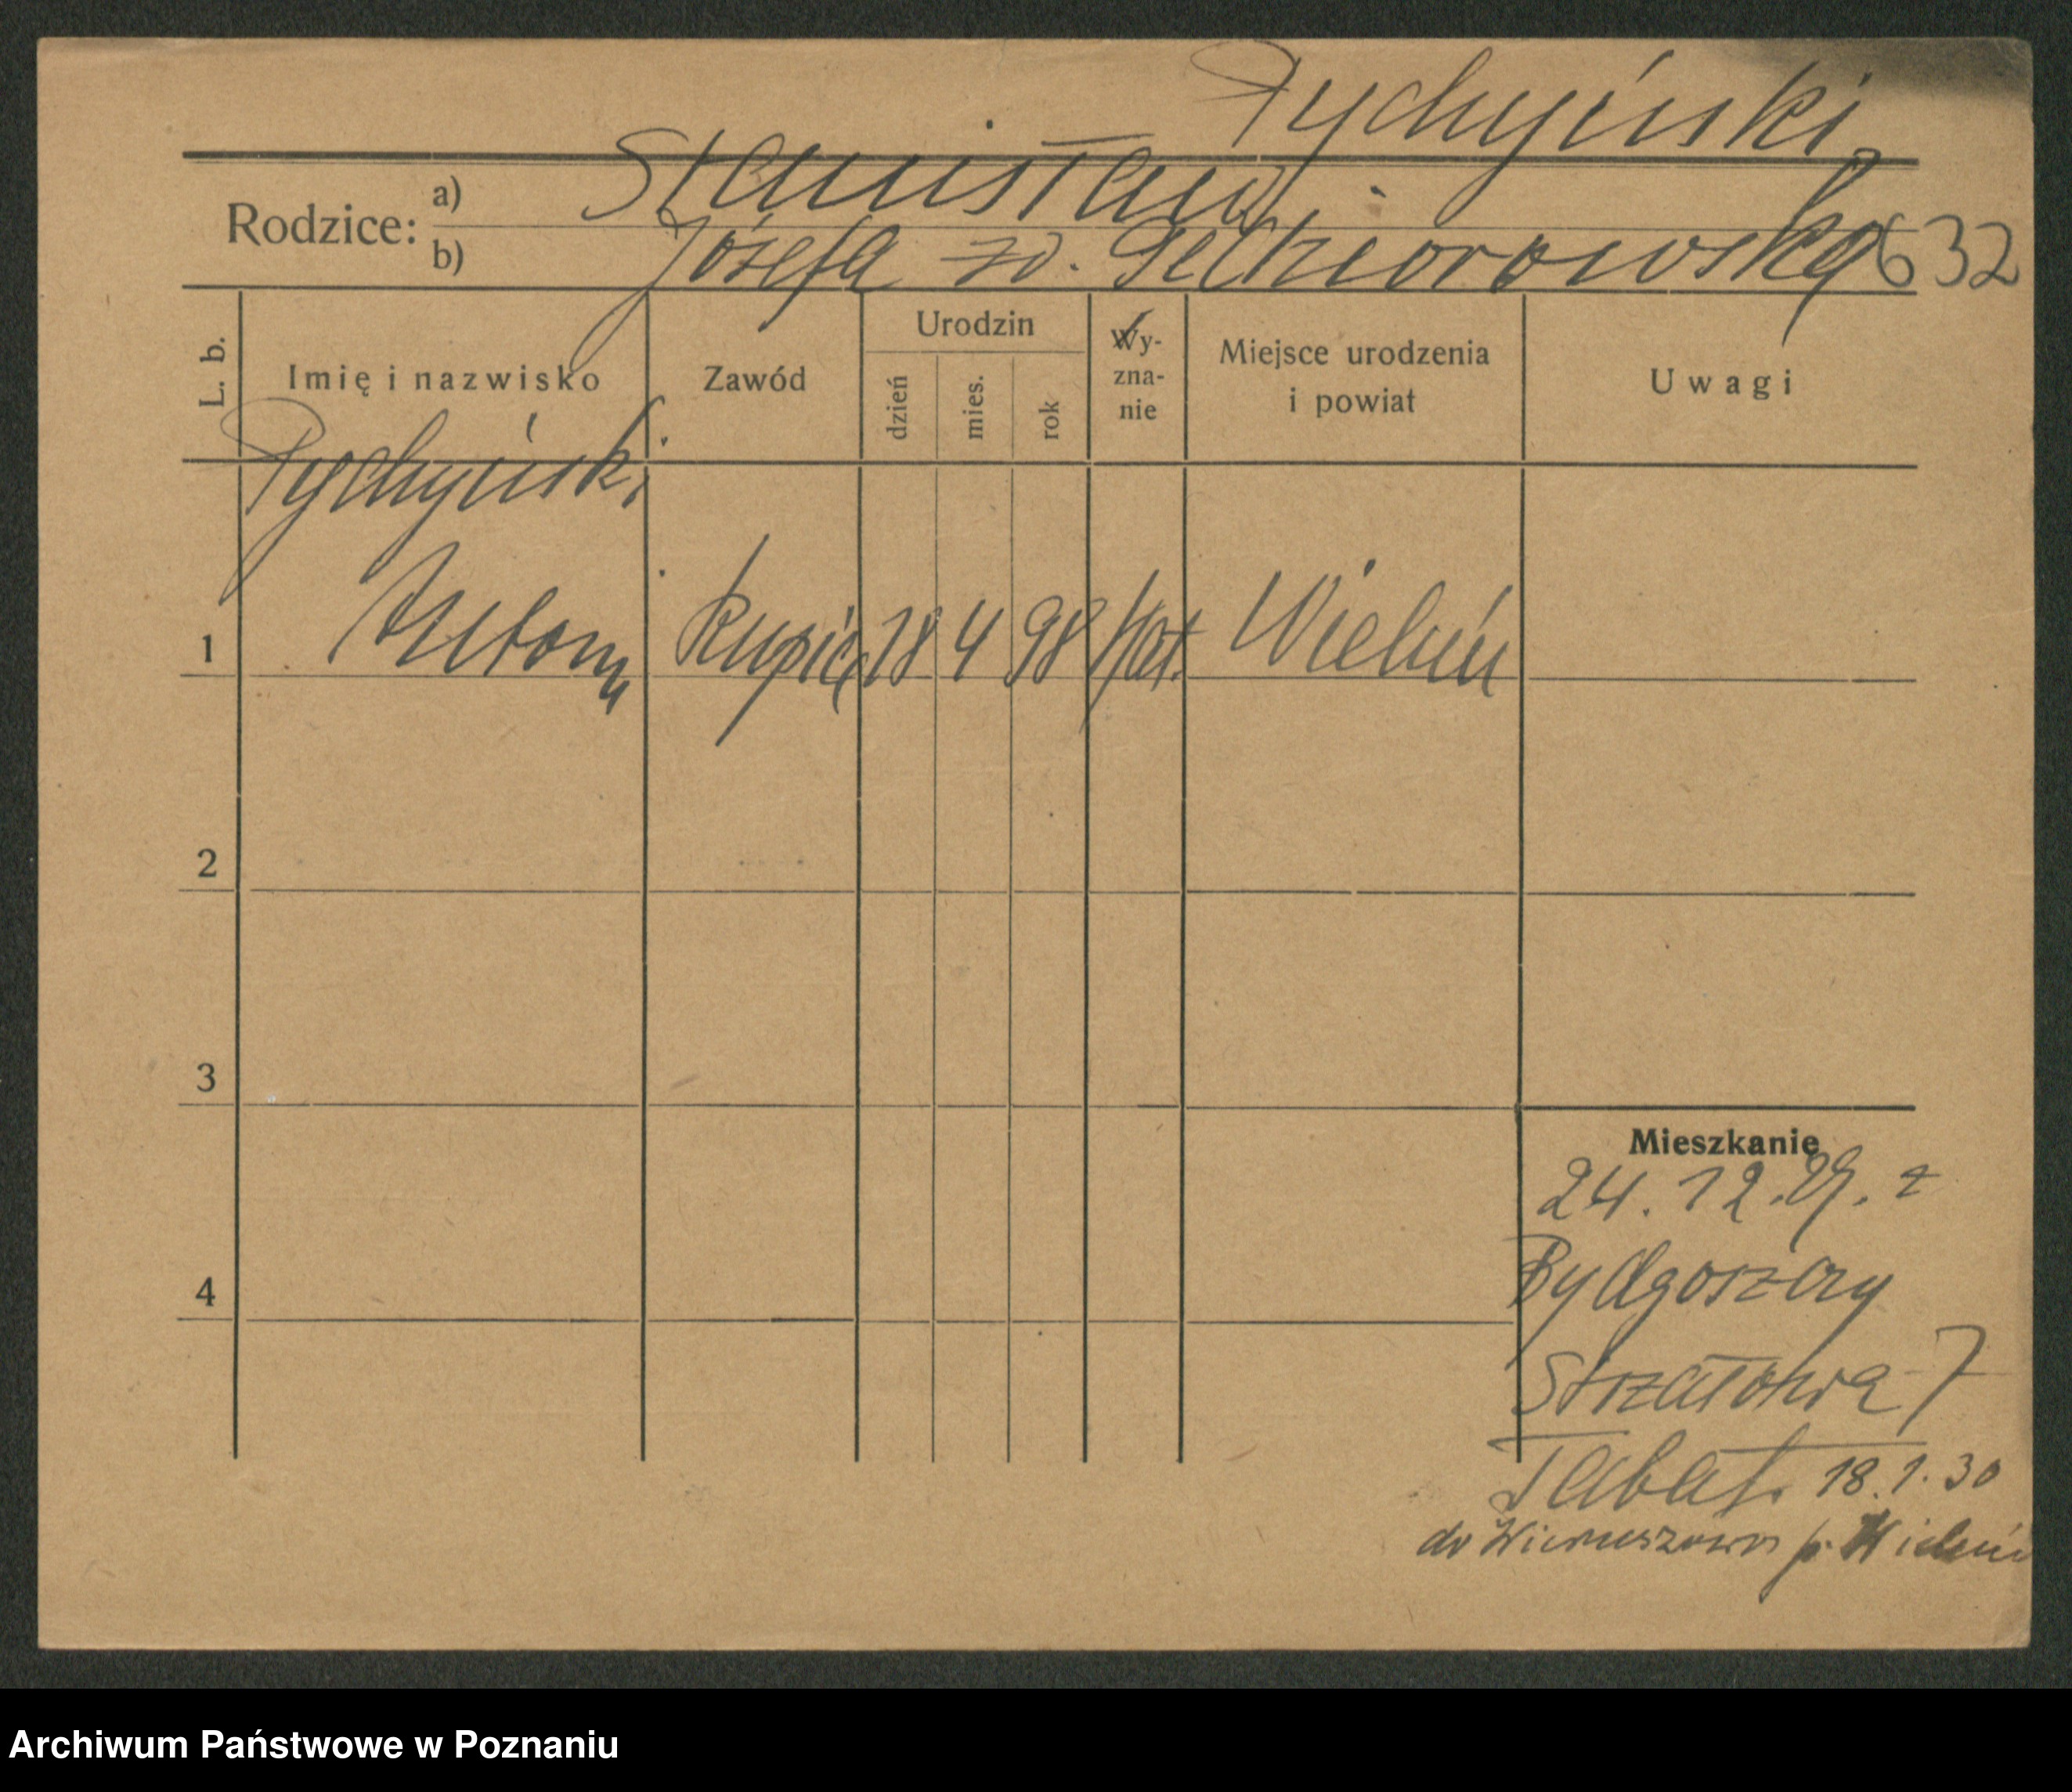 Pychyński
Rodzice: a) Stanisław
b) Józefa zd. 632
L. b.
Imię i nazwisko
Zawód
Urodzin
dzień
mies.
rok
Wy-
zna-
nie
Miejsce urodzenia
i powiat
Uwagi
Pychyński
1 Antoni Kupiec 18 4 98 Kat. Wieluń
2
3
4
Mieszkanie
24.12.29. z
Bydgoszczy
Strzałowa 7
18.1.30
do Wieruszowa p. Wieluń
Archiwum Państwowe w Poznaniu